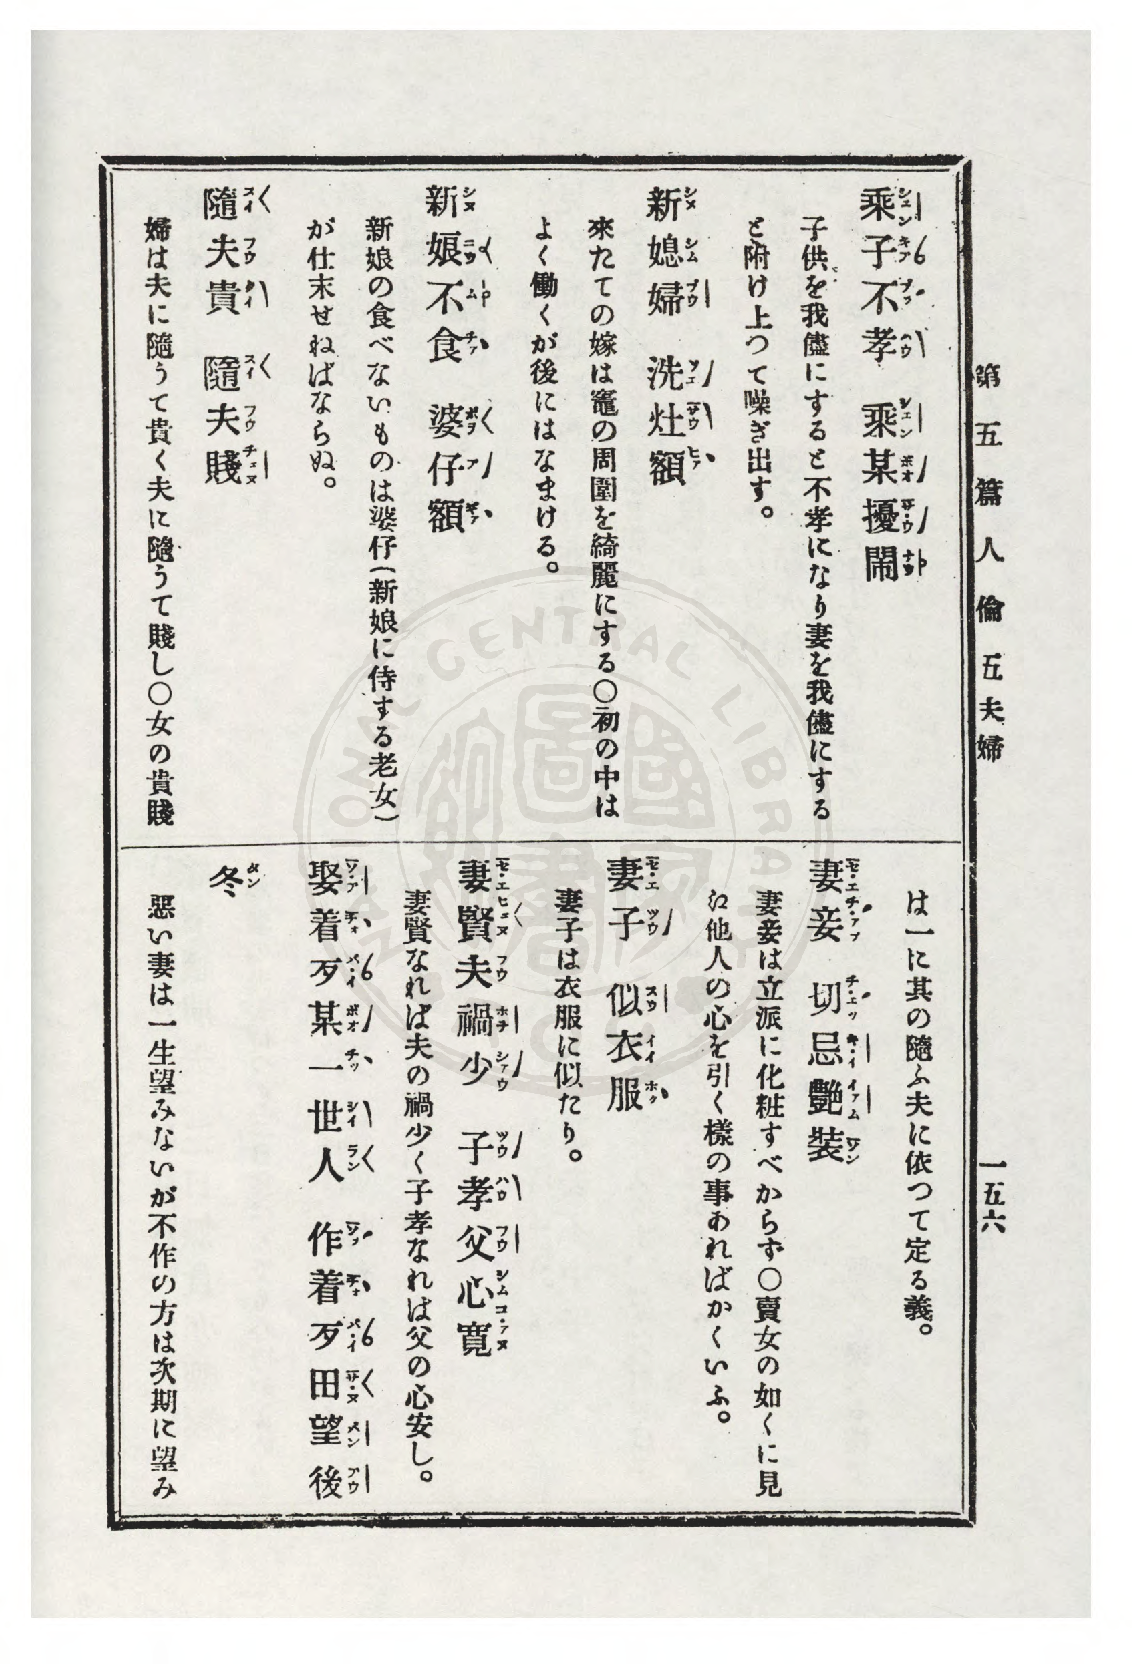 第五篇 人倫 五 夫婦
一五六
乘子不孝 乘某擾鬧
子供を我儘にすると不孝になり妻を我儘にする
と附け上つて噪ぎ出す。
新媳婦 洗灶額
來たての嫁は竈の周圍を綺麗にする〇初の中は
よく働くが後にはなまける。
新娘不食 婆仔額
新娘の食べないものは婆仔(新娘に侍する老女)
が仕末せねばならぬ。
隨夫貴 隨夫賤
婦は夫に隨うて貴く夫に隨うて賤し〇女の貴賤
は一に其の隨ふ夫に依つて定る義。
妻妾 切忌艷裝
妻妾は立派に化粧すべからず〇賣女の如くに見
え他人の心を引く樣の事あればかくいふ。
妻子 似衣服
妻子は衣服に似たり。
妻賢夫禍少 子孝父心寬
妻賢なれば夫の禍少く子孝なれば父の心安し。
娶着歹某一世人 作着歹田望後
冬
惡い妻は一生望みないが不作の方は次期に望み
NATIONAL CENTRAL LIBRARY